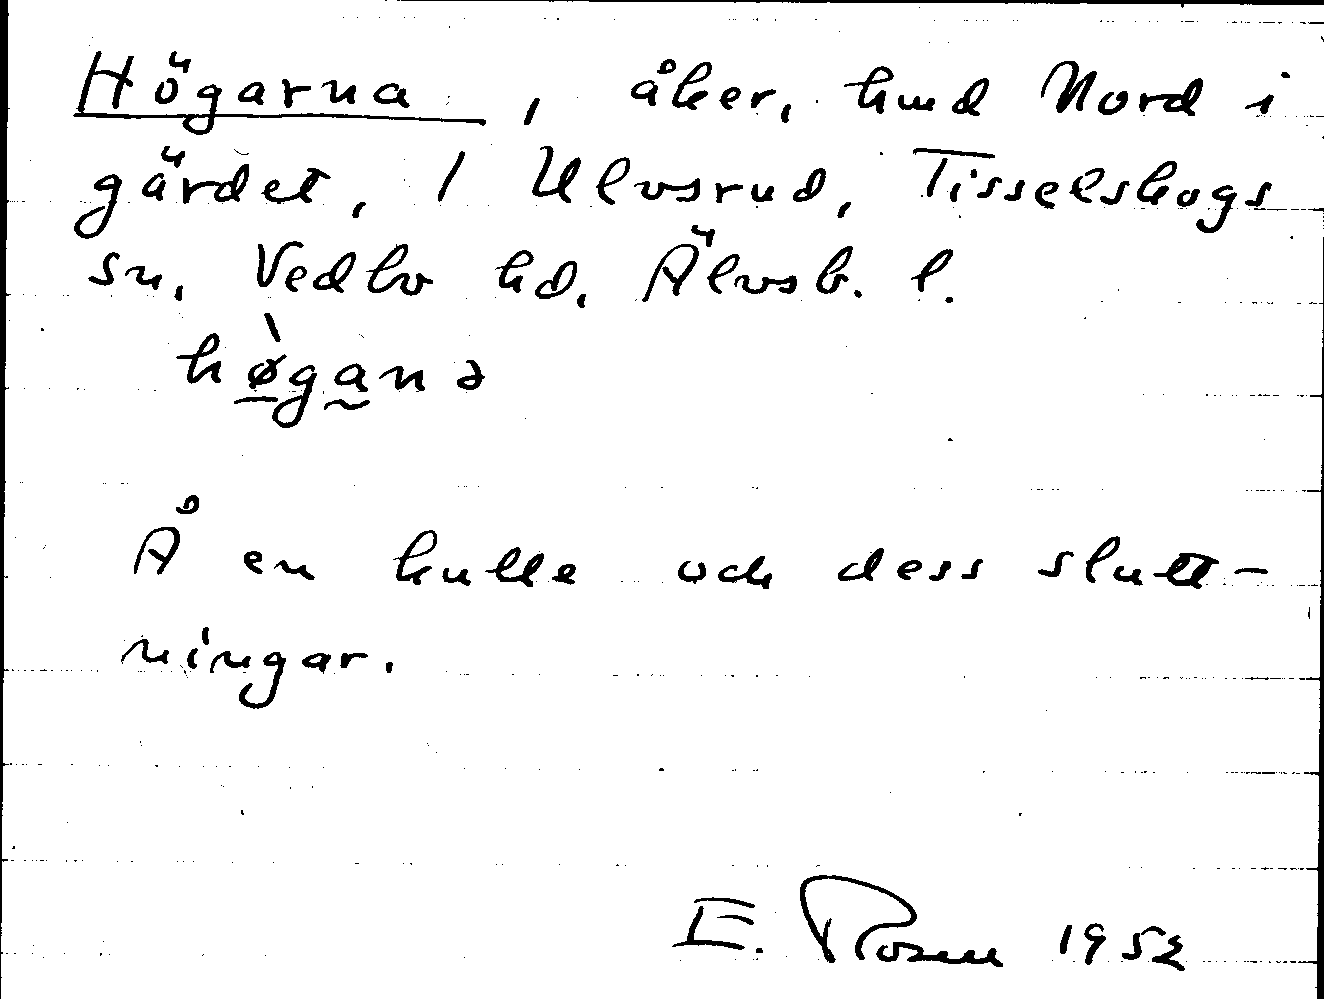 Högarna, åker, hmd Nord i
gärdet, 1 Ulvsrud, Tisselskogs
sn, Vedbo hd, Älvsb. l.
hø̀ganə
Å en kulle och dess slutt-
ningar.
E. Rosen 1952